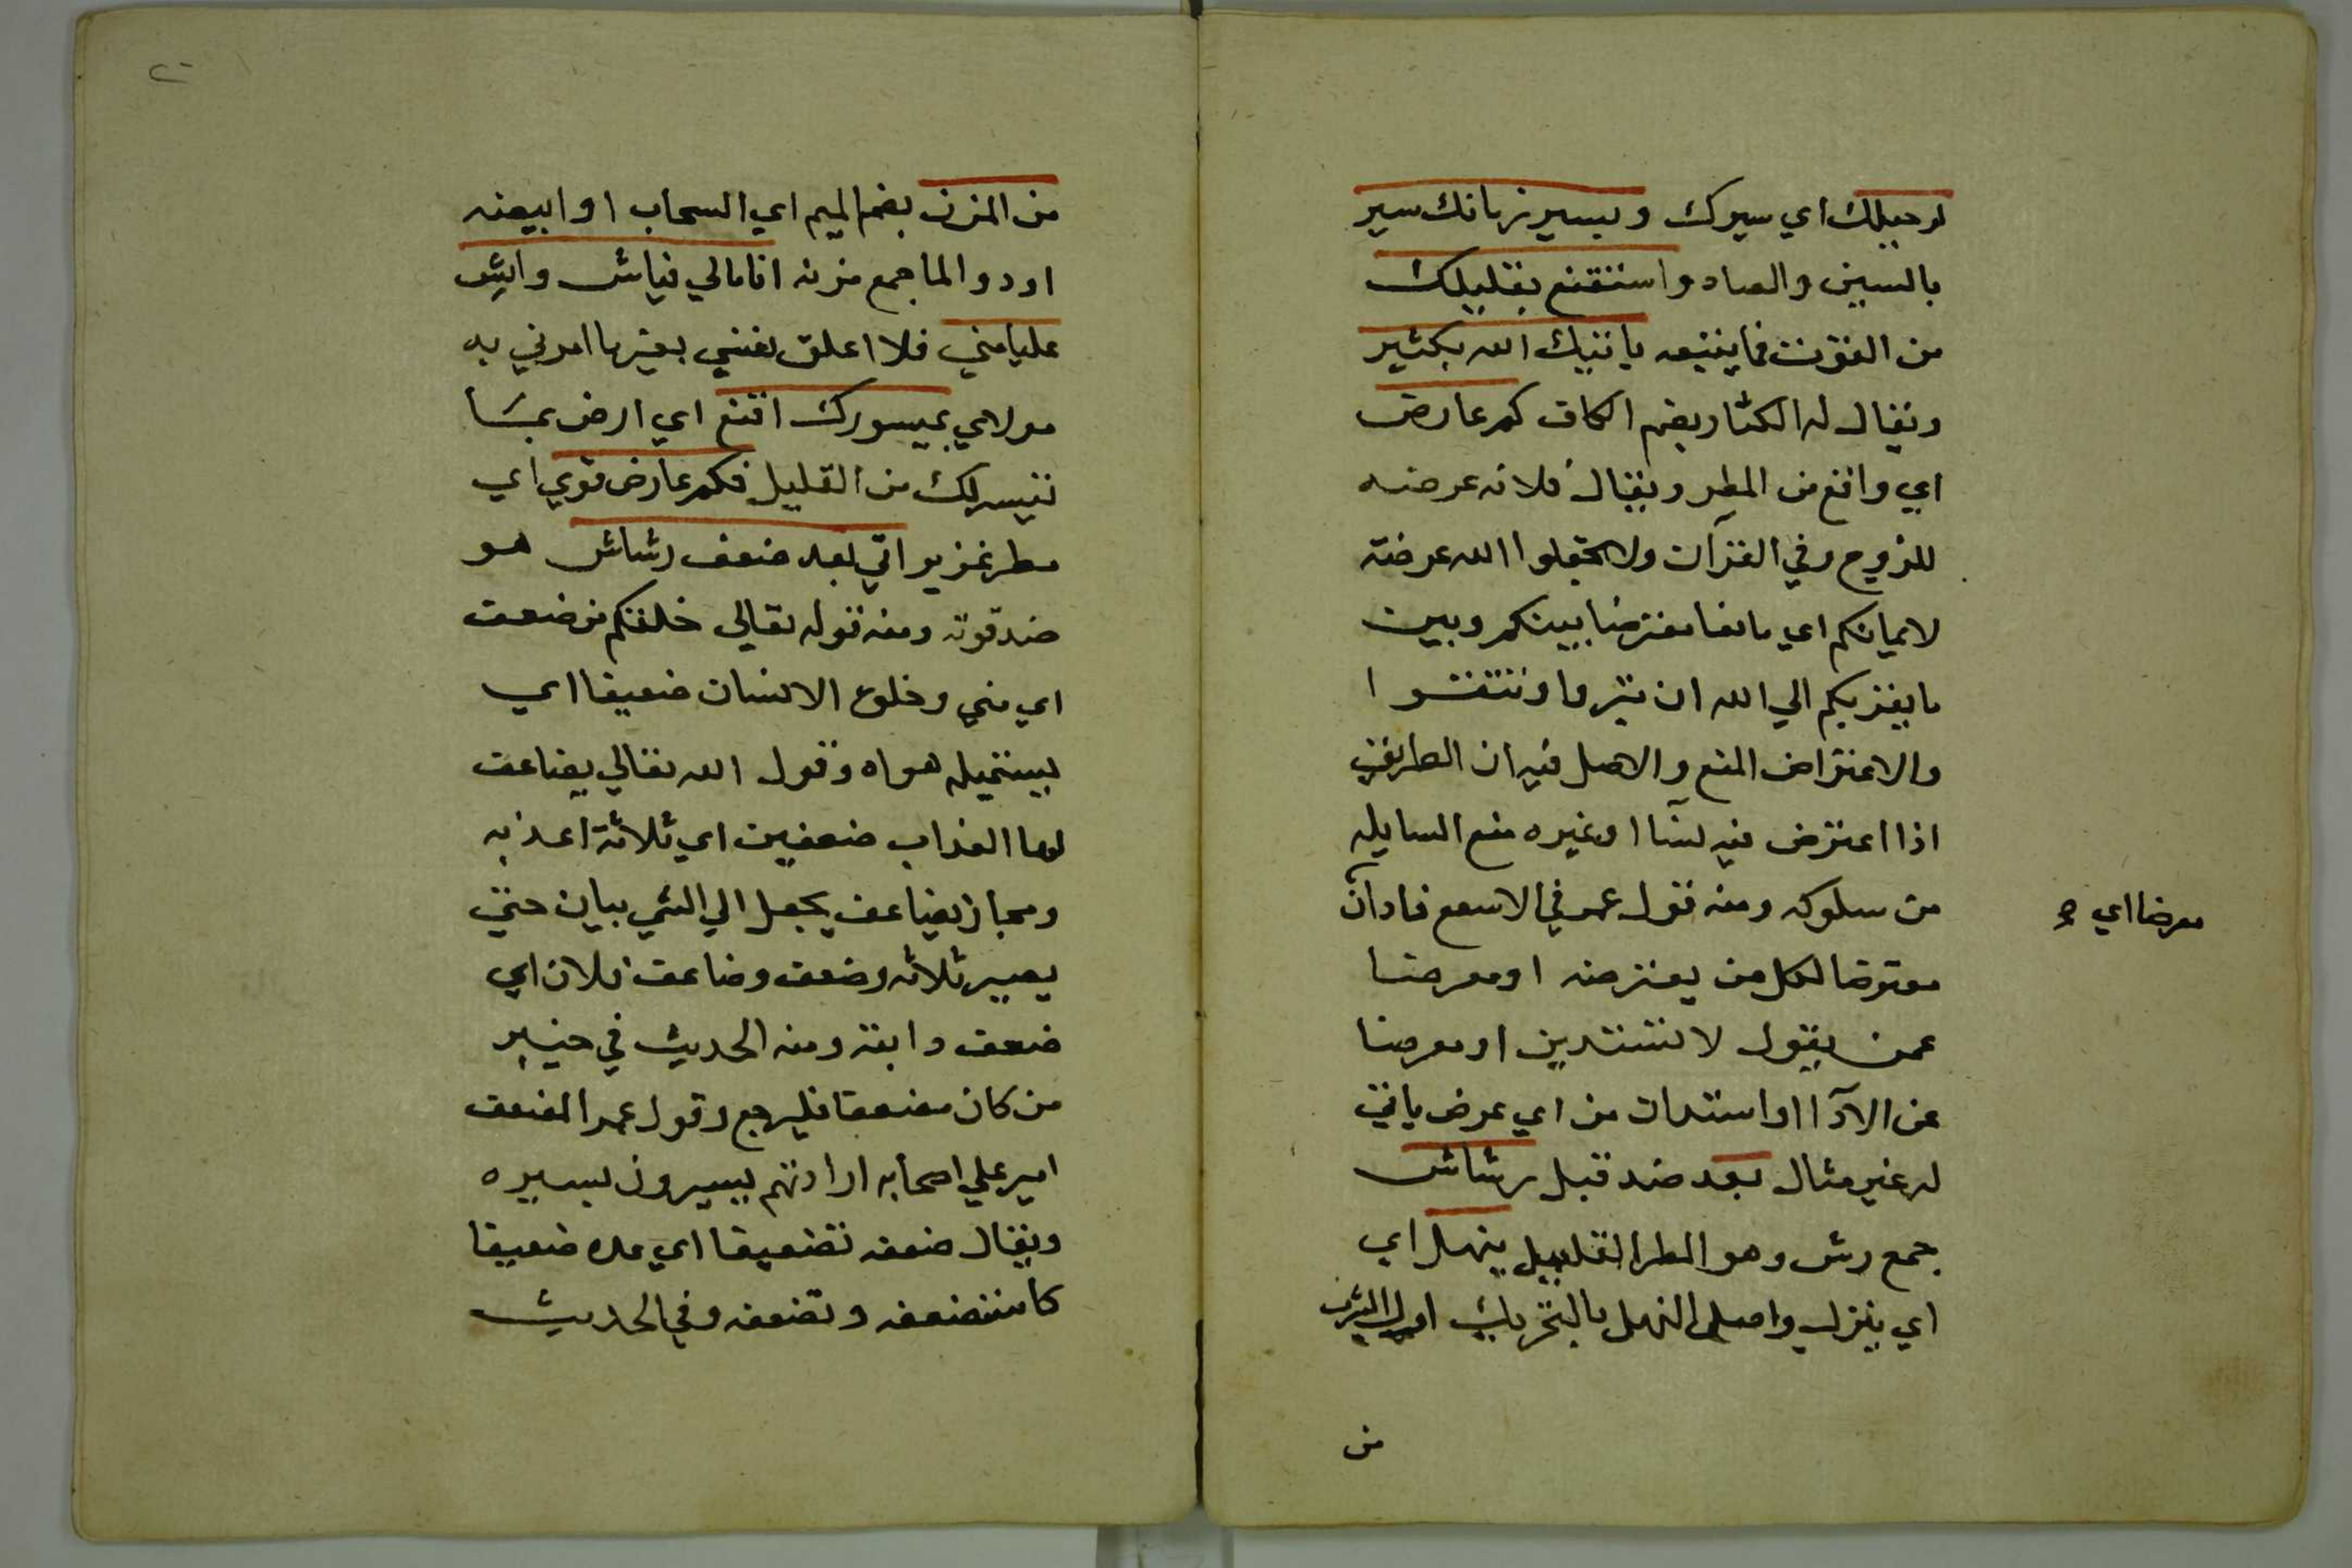 لرحيلك اي سيرك وبسير زمانك سير
بالسين والصاد واستقنع بقليلك
من القوت فما ينفعه ياتيك الله بكثير
ويقال له الكثار بضم الكاف كم عارض
اي واقع من المطر ويقال فلانه عرضه
للزوج وفي القرآن ولا تجعلوا الله عرضة
لايمانكم اي مانعا معترضا بينكم وبين
ما يقربكم الي الله ان تبروا وتتقوا
والاعتراض المنع والاصل فيه ان الطريق
اذا اعترض فيه بنآ او غيره منع السابله
من سلوكه ومنه قول عمر في الاسيفع فادان
معرضا اي
معترضا لكل من يعترضه او معرضا
عمن يقول لا تستدين او معرضا
عن الادآ او استدان من اي عرض ياتي
له غير مثال بعد ضد قبل رشاش
جمع رش وهو المطر القليل ينهل اي
اي ينزل واصل النهل بالتحريك اول الشرب
من
من المزن بضم الميم اي السحاب او ابيضه
او ذو الما جمع مزنه انا مالي فياش وايش
عليا مني فلا اعلق نفسي بغير ما امرني به
مولاي بميسورك اقنع اي ارض بما
تيسر لك من القليل فكم عارض قوي اي
مطر غزير اتي بعد ضعف رشاش هو
ضد قوته ومنه قوله تعالي خلقكم من ضعف
اي مني وخلق الانسان ضعيفا اي
يستميله هواه وقول الله تعالي يضاعف
لها العذاب ضعفين اي ثلاثة اعذبه
ومجاز يضاعف يجعل الي الشي شيان حتي
يصير ثلاثه وضعف وضاعف فلان اي
ضعف دابته ومنه الحديث في خيبر
من كان مضعفا فليرجع وقول عمر المضعف
امير علي اصحابه اراد انهم يسيرون بسيره
ويقال ضعفه تضعيفا اي عده ضعيفا
كاستضعفه وتضعفه وفي الحديث